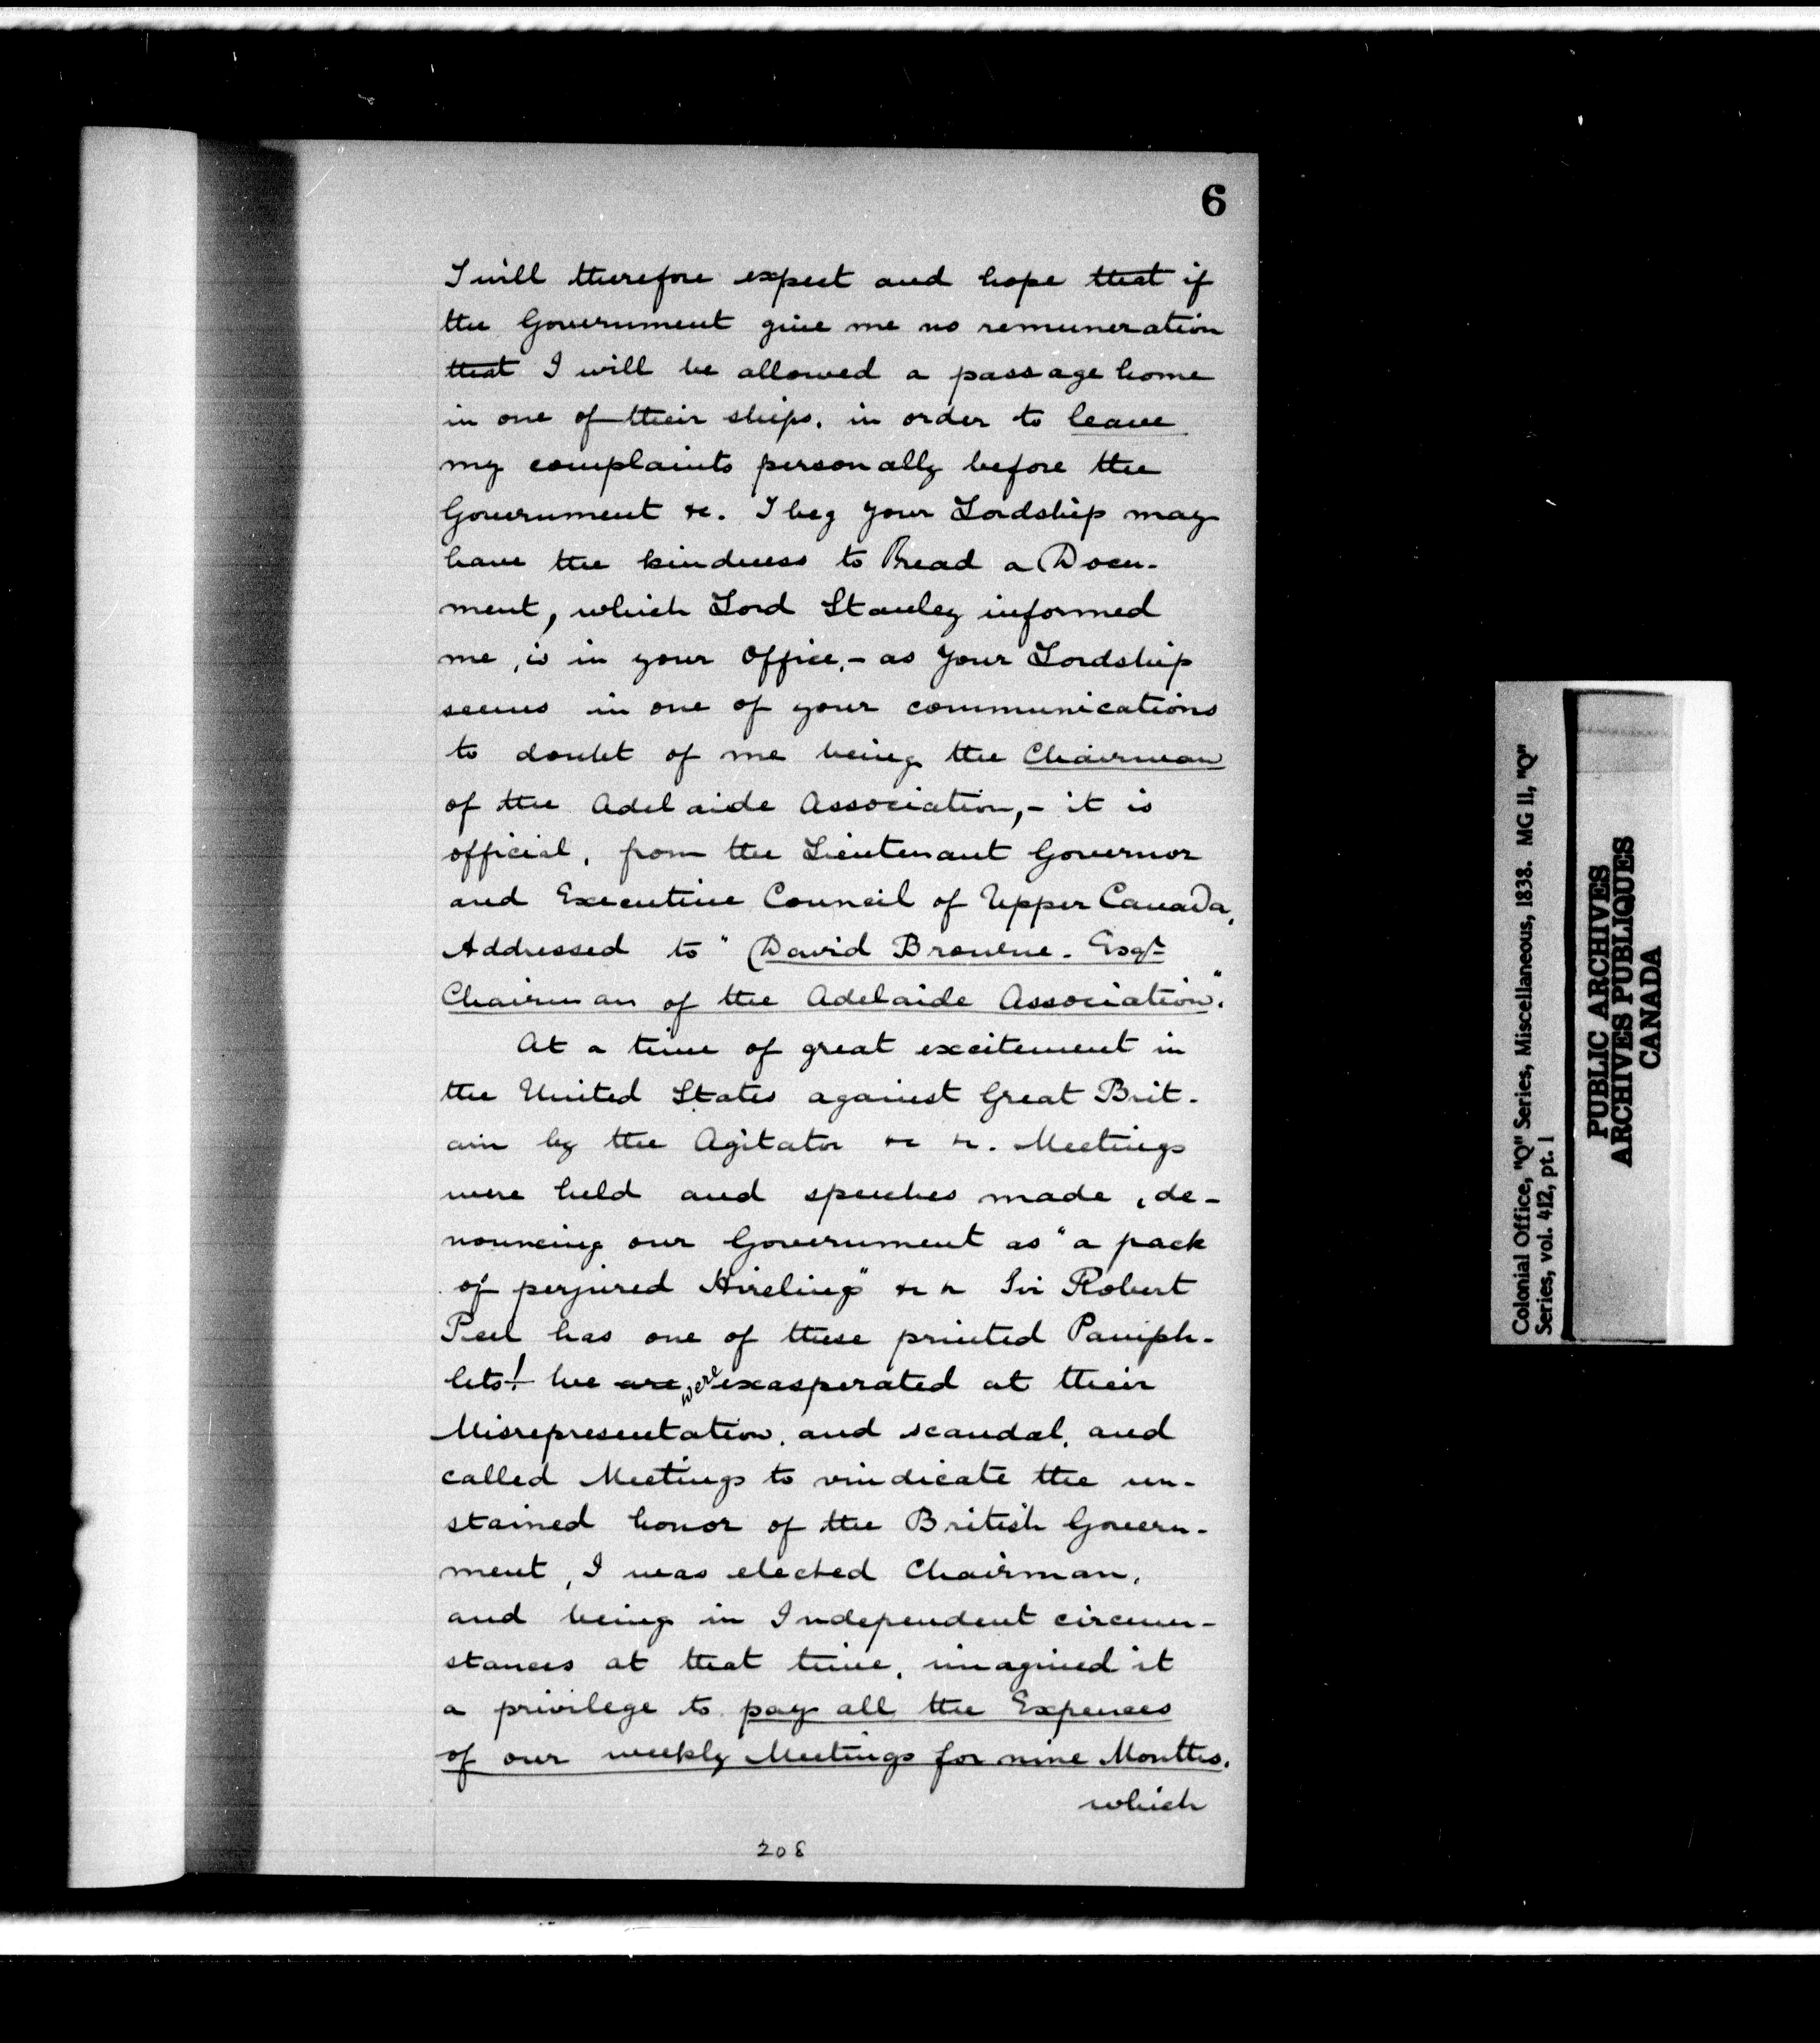 6
I will therefore expect and hope that if
the Government give me no remuneration
that I will be allowed a passage home
in one of their ships. in order to leave
my complaints personally before the
Government &c. I beg your Lordship may
have the kindness to Read a Docu-
ment, which Lord Stanley informed
me, is in your Office, - as your Lordship
seems in one of your communications
to doubt of me being the Chairman
of the Adelaide Association, - it is
official, from the Lieutenant Governor
and Executive Council of Upper Canada,
Addressed to "David Browne - Esqr
Chairman of the Adelaide Association".
At a time of great excitement in
the United States against Great Brit-
ain by the Agitator &c &c. Meetings
were held and speeches made, de-
nouncing our Government as "a pack
of perjured Hirelings" &c &c Sir Robert
Peel has one of these printed Pamph-
lets! We are were exasperated at their
Misrepresentation, and scandal, and
called Meetings to vindicate the un-
stained honor of the British Govern-
ment, I was elected Chairman,
and being in Independent circum-
stances at that time, imagined it
a privilege to pay all the Expences
of our weekly Meetings for nine Months.
which
208
Colonial Office, "Q" Series, Miscellaneous, 1838. MG 11, "Q"
Series, vol. 412, pt. 1
PUBLIC ARCHIVES
ARCHIVES PUBLIQUES
CANADA